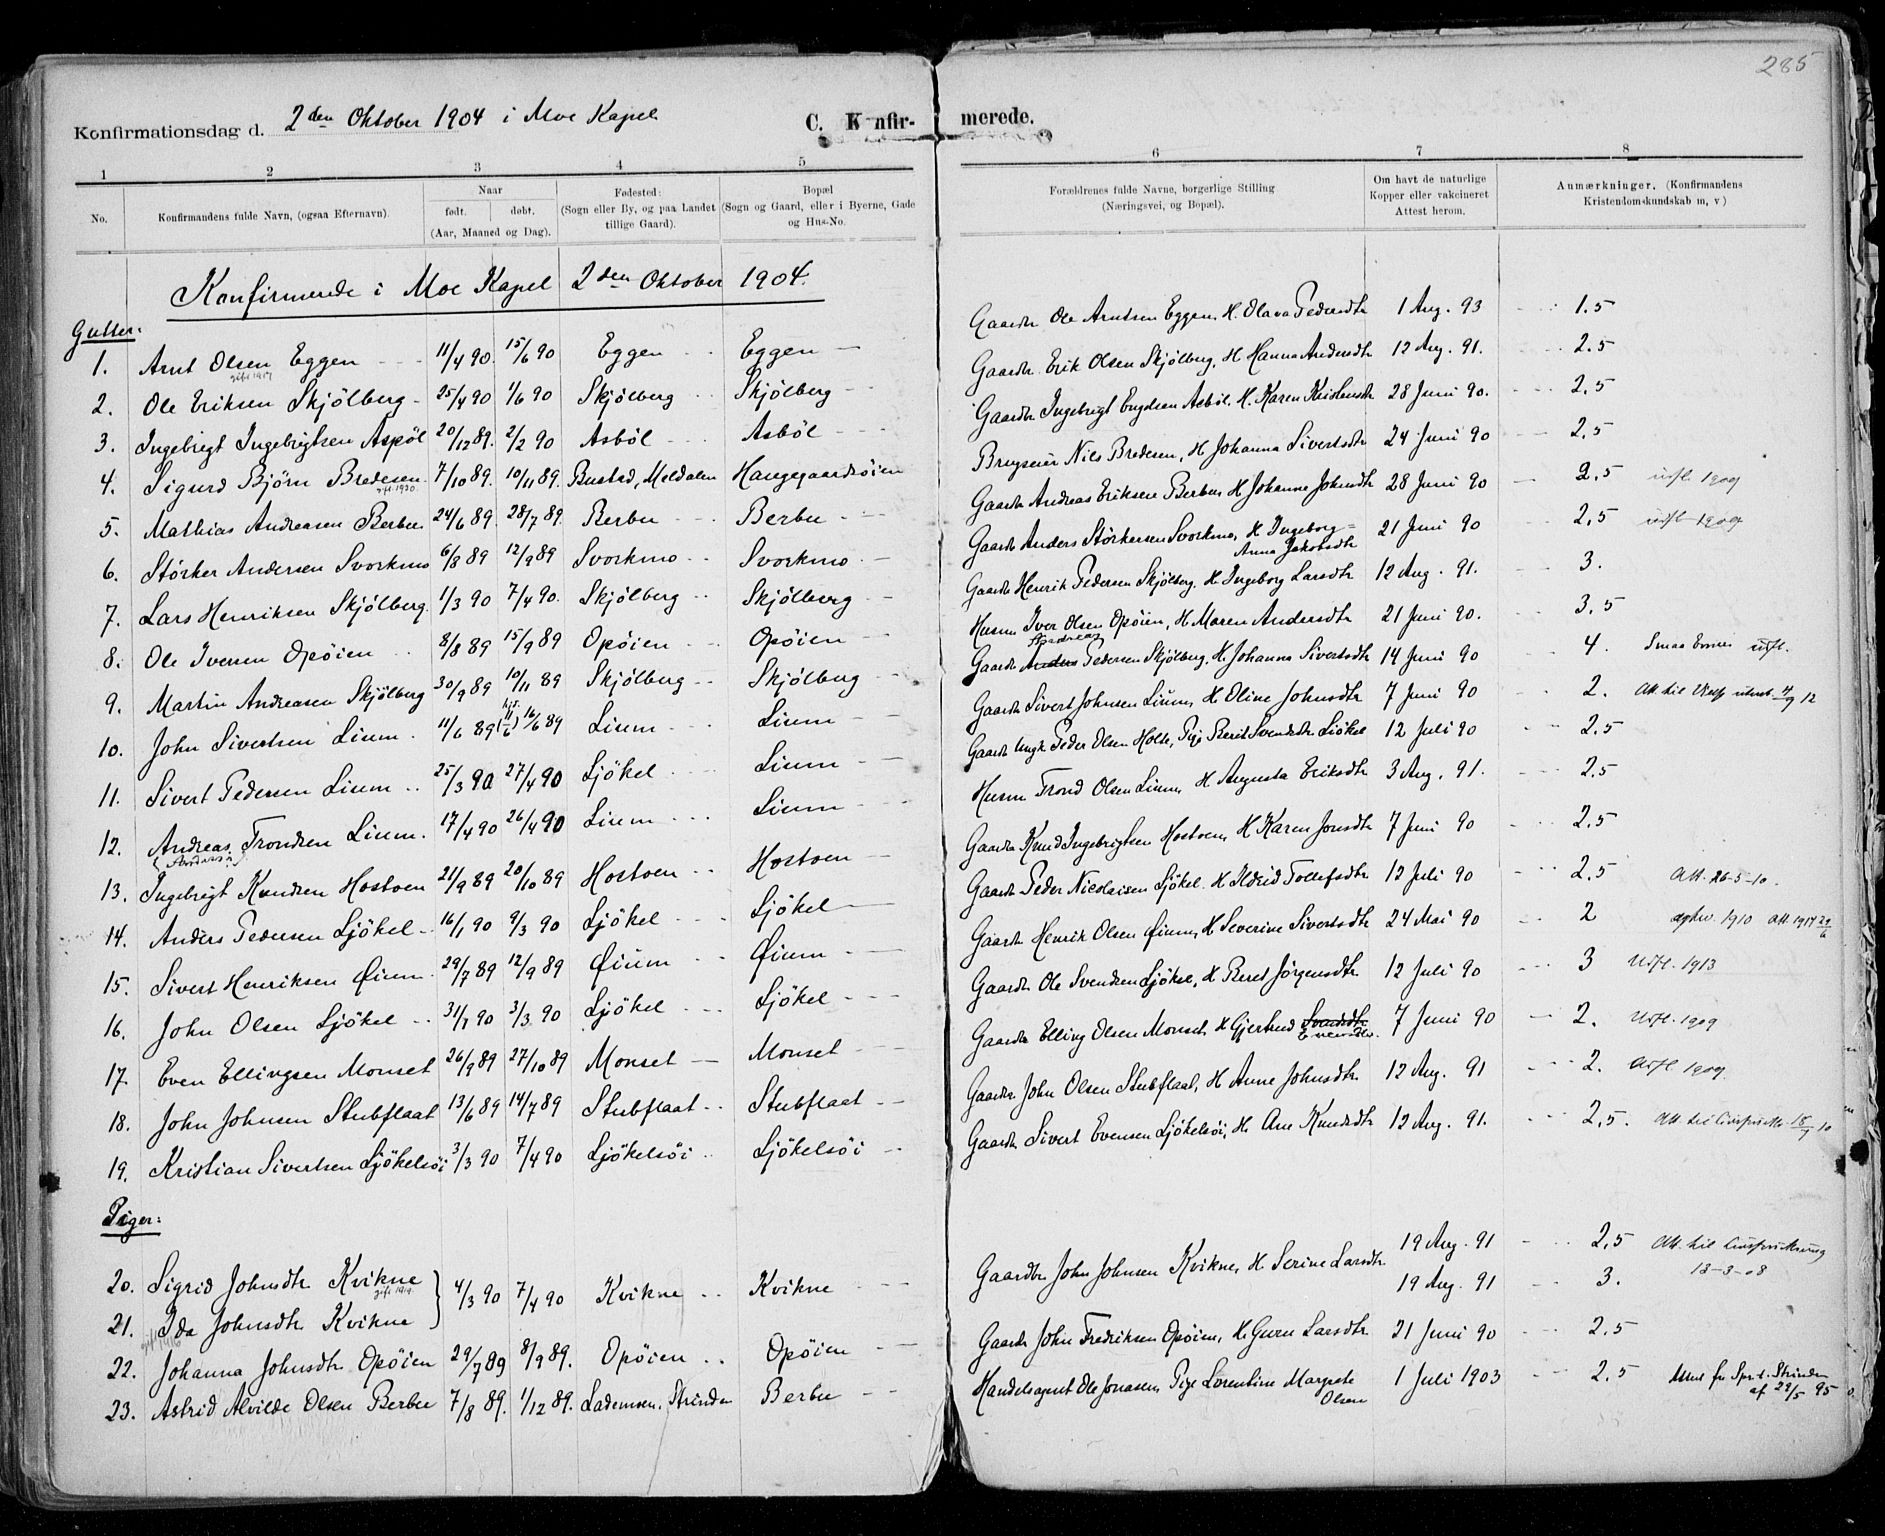 285
Konfirmationsdag d. 2den Oktober 1904 i Moe Kapel
C. Konfir- merede.
1 2 3 4 5 6 7 8
No. Konfirmandens fulde Navn, (ogsaa Efternavn). Naar født. døbt. (Aar, Maaned og Dag). Fødested: (Sogn eller By, og paa Landet tillige Gaard). Bopæl (Sogn og Gaard, eller i Byerne, Gade og Hus-No. Forældrenes fulde Navne, borgerlige Stilling (Næringsvei, og Bopæl). Om havt de naturlige Kopper eller vakcineret Attest herom. Anmærkninger. (Konfirmandens Kristendomskundskab m, v)
Konfirmerede i Moe Kapel 2den Oktober 1904.
Gutter:
1. Arnt Olsen Eggen 11/4 90. 15/6 90 Eggen Eggen Gaardbr Ole Arntsen Eggen, H. Olava Pedersdtr 1 Aug. 93 1.5
gift 1917
2. Ole Eriksen Skjölberg 25/4 90 1/6 90 Skjölberg Skjölberg Gaardbr. Erik Olsen Skjölberg, H. Hanna Andersdtr 12 Aug. 91. 2.5
3. Ingebrigt Ingebrigtsen Aspöl 20/12 89. 2/2 90 Asböl Asböl Gaardbr Ingebrigt Asböl. H. Karen 28 Juni 90. 2.5
4. Sigurd Björn Bredesen 7/10 89. 10/11 89. Bustad, Meldalen Haugegaardsöien Nils Bredesen, H Johanna Sivertsdtr 24 Juni 90 2.5
gift 1920
5. Mathias Andreasen Berbu 24/6 89. 28/7 89. Berbu Berbu Gaardbr Andreas Eriksen Berbu, H Johanne Johnsdtr 28 Juni 90 2.5 utfl. 1909
6. Störker Andersen Svorkmo 6/8 89 12/9 89 Svorkmo Svorkmo Gaardbr Anders Störkersen Svorkmo, H Ingeborg= Anna Jakobsdtr 21 Juni 90 2.5 utfl 1909
7. Lars Henriksen Skjölberg. 1/3 90 7/4 90. Skjölberg Skjölberg Gaardbr Henrik Pedersen Skjölberg. H. Ingeborg Larsdtr 12 Aug. 91. 3.
8. Ole Iversen Opöien 8/8 89 15/9 89 Opöien Opöien Husm Iver Olsen Opöien, H. Maren Andersdtr 21 Juni 90. 3.5
9. Martin Andreasen Skjölberg 30/9 89 10/11 89 Skjölberg Skjölberg Gaardbr Anders Andreas Pedersen Skjölberg, H. Johanna Sivertsdtr 14 Juni 90 4. Smaa Evner utfl.
10. John Sivertsen Lium. 11/6 89 (hjd. 11/6) 16/6 89 Lium Lium Gaardbr Sivert Johnsen Lium, H Oline Johnsdtr 7 Juni 90 2. Att. til 4/9 12
11. Sivert Pedersen Lium 25/3 90 27/4 90 Ljökel Lium Gaardbr Ungk. Peder Olsen Holte, Pige Berit Svendsdtr Ljökel 12 Juli 90 2.5
12. Andreas Trondsen Lium. 17/4 90 26/4 90 Lium Lium Husm Trond Olsen Lium, H Augusta Eriksdtr 3 Aug. 91. 2.5
13. Ingebrigt Knudsen Hostoen 21/9 89 20/10 89 Hostoen Hostoen Gaardbr Knud Ingebrigtsen Hostoen, H Karen Jonsdtr 7 Juni 90 2.5
14. Anders Pedersen Ljökel 16/1 90 9/3 90 Ljökel Ljökel Gaardbr Peder Nicolaisen Ljökel. H Ildrid Tollefsdtr 12 Juli 90 2.5 Att. 26-5-10.
15. Sivert Henriksen Öium 29/7 89 12/9 89 Öium Öium Gaardbr Henrik Olsen Öium, H Severine Sivertsdtr 24 Mai 90 2 1910 Att. 1917 29/6
16. John Olsen Ljökel 31/1 90 3/3 90 Ljökel Ljökel Gaardbr Ole Svendsen Ljökel, H Beret Jörgensdtr 12 Juli 90 3 Utfl. 1913
17. Even Ellingsen Monset 26/9 89 27/10 89 Monset Monset Gaardbr Elling Olsen Monset, H Gjertrud Svendsdtr Evensdtr. 7 Juni 90 2. Utfl. 1909
18. John Johnsen Stubflaat 13/6 89 14/7 89 Stubflaat Stubflaat Gaardbr John Olsen Stubflaat, H. Anne Johnsdtr 12 Aug. 91 2. Utfl 1909.
19. Kristian Sivertsen Ljökelsöi 3/3 90 7/4 90 Ljökelsöi Ljökelsöi Gaardbr Sivert Evensen Ljökelsöi, H. Ane Knudsdtr 12 Aug. 91. 2.5. Att. til 18/7 10
Piger:
20. Sigrid Johnsdtr Kvikne 4/3 90 7/4 90 Kvikne Kvikne Gaardbr John Johnsen Kvikne, H Serine Larsdtr 19 Aug. 91 2.5 Att. til
gift 1919. 13-3-08
21. Ida Johnsdtr Kvikne 19 Aug. 91 3.
gift 1916
22. Johanna Johnsdtr Opöien 29/7 89 8/9 89. Opöien Opöien Gaardbr John Fredriksen Opöien, H. Guru Larsdtr 21 Juni 90 2.5
23. Astrid Alvilde Olsen Berbu 7/8 89. 1/12 89. Lademoen, Strinden Berbu Handelsagent Ole Jonasen, Pige Lorentine Margrete Olsen 1 Juli 1903 2.5 fr Spr. t. Strinden af 29/5 95